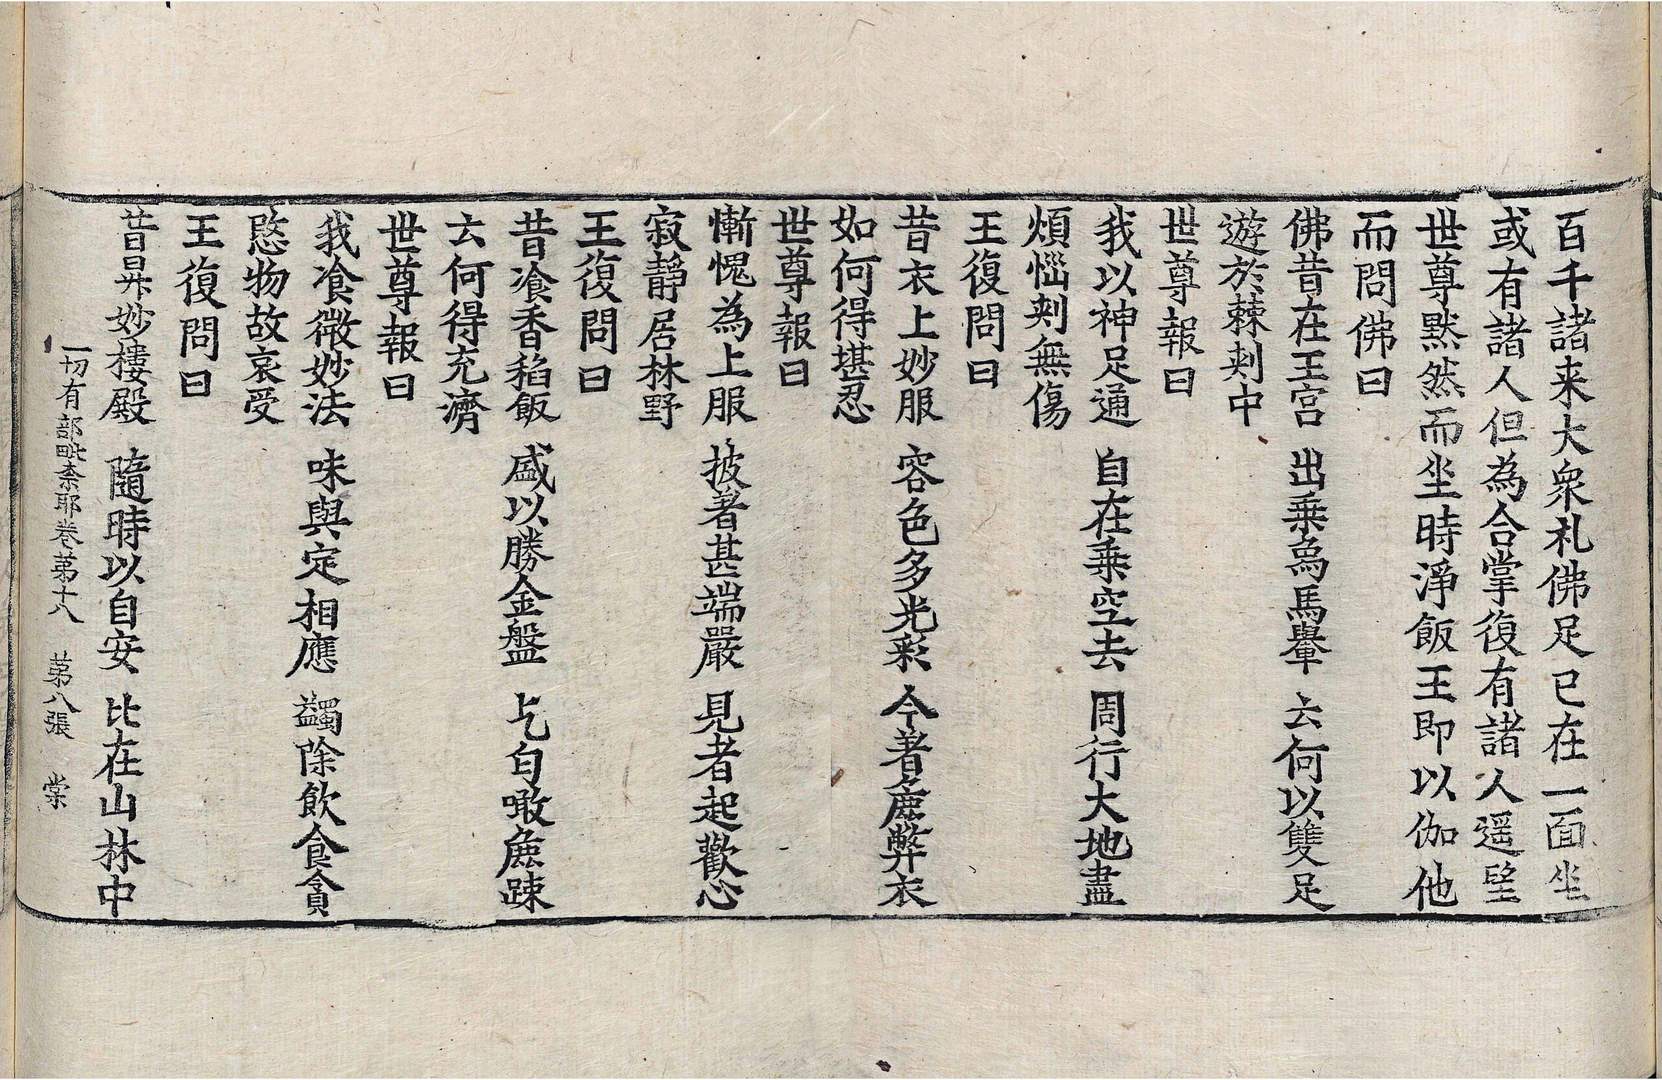 百千諸来大衆礼佛足已在一面坐
或有諸人但為合掌復有諸人遥望
世尊黙然而坐時淨飯王即以伽他
而問佛曰
佛昔在王宮　出乗烏馬轝　云何以雙足
遊於棘刾中
世尊報曰
我以神足通　自在乗空去　周行大地盡
煩惱刾無傷
王復問曰
昔衣上妙服　容色多光彩　今著麁弊衣
如何得堪忍
世尊報曰
慚愧為上服　披著甚端嚴　見者起歡心
寂靜居林野
王復問曰
昔飡香稻飯　盛以勝金盤　乞匄噉麁踈
云何得充濟
世尊報曰
我飡微妙法　味與定相應　蠲除飲食貪
愍物故哀受
王復問曰
昔昇妙樓殿　隨時以自安　比在山林中
一切有部毗奈耶卷苐十八　苐八張　棠